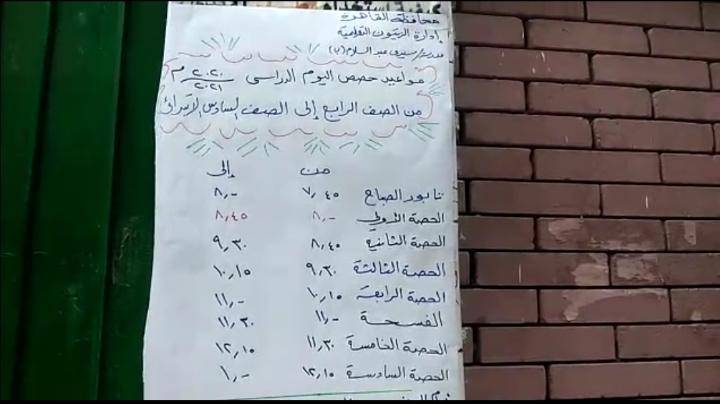 محافظة القاهرة
إدارة الزيتون التعليمية
مدرسة/ سيدى عبد السلام (٢)
مواعيد حصص اليوم الدراسى ٢٠٢٠/٢٠٢١ م
من الصف الرابع إلى الصف السادس الابتدائى
من إلى
تابور الصباح ٧,٤٥ ٨,-
الحصة الأولي ٨,- ٨,٤٥
الحصة الثانيه ٨,٤٥ ٩,٣٠
الحصة الثالثة ٩,٣٠ ١٠,١٥
الحصة الرابعة ١٠,١٥ ١١,-
الفسحة ١١,- ١١,٣٠
الحصة الخامسة ١١,٣٠ ١٢,١٥
الحصة السادسة ١٢,١٥ ١,-